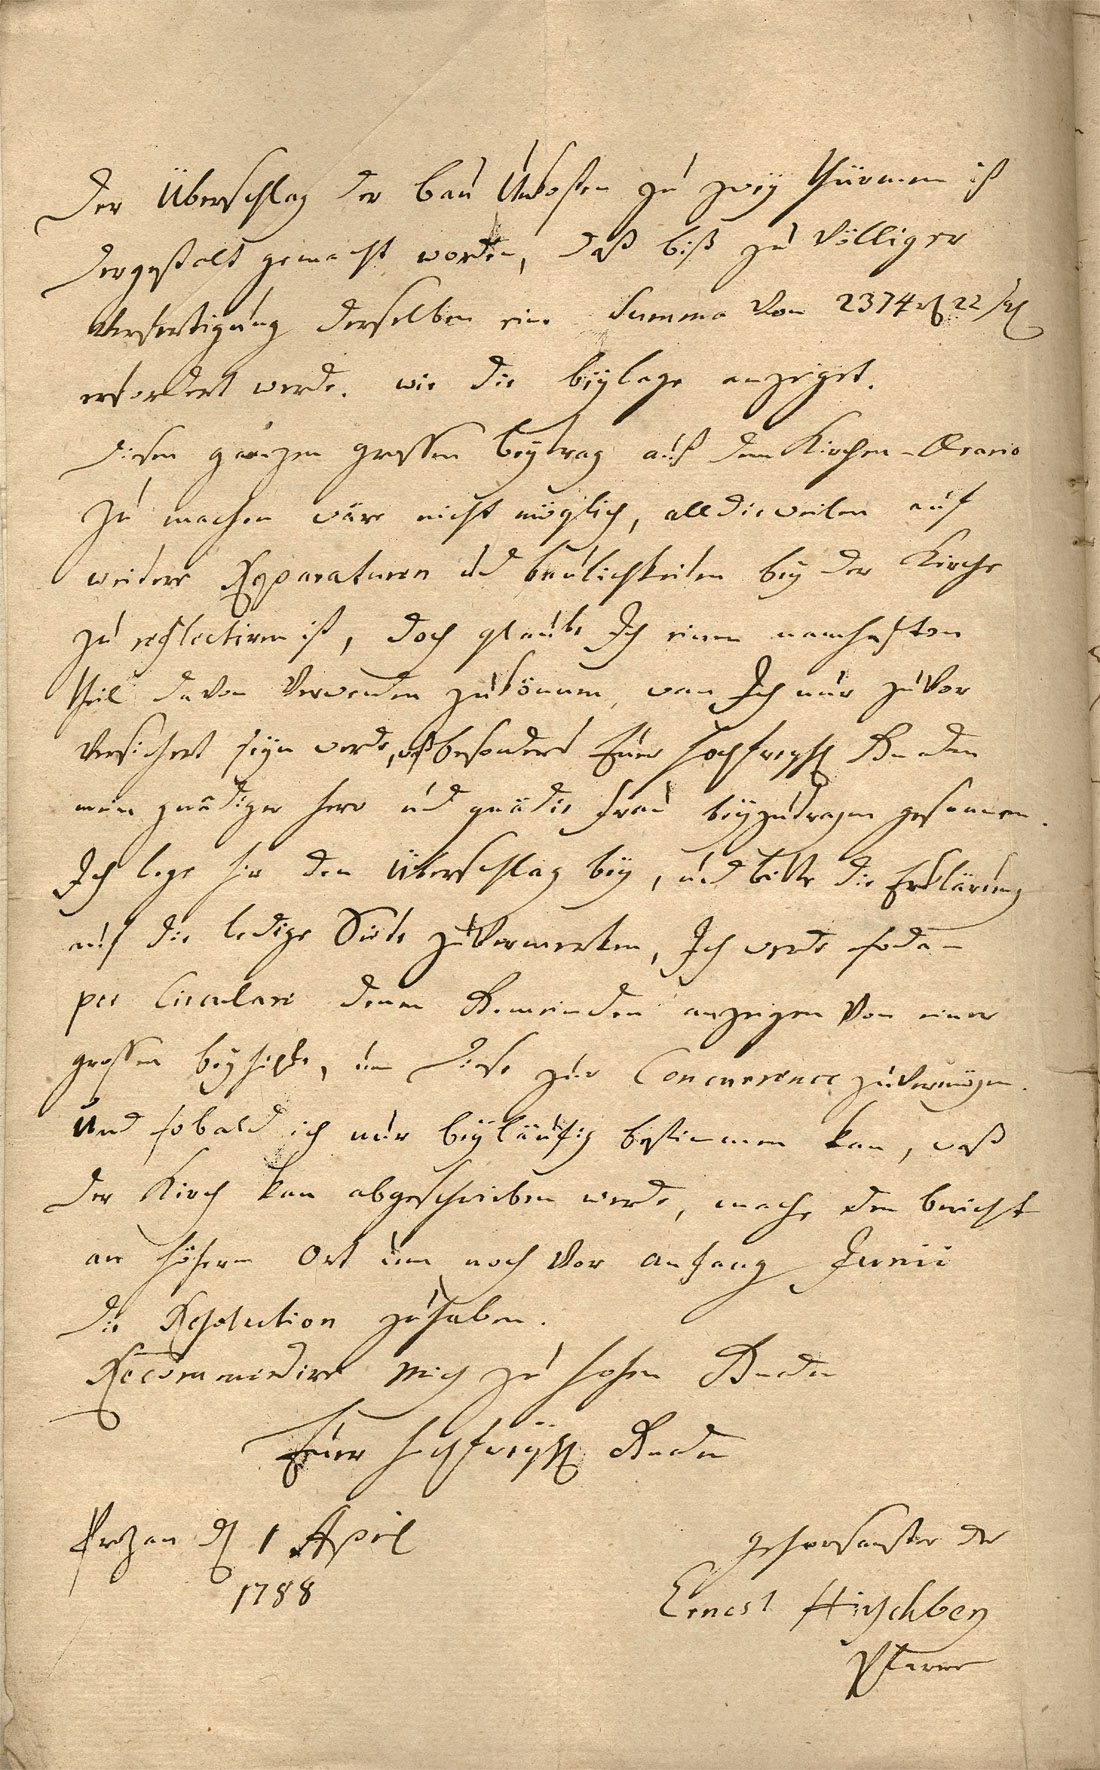 Der Überschlag der bau Unkosten zu zwey Thürmen ist
dergestalt gemacht worden, daß biß zu Völliger
Verfertigung derselben eine Summa Von 2374 22
erfordert werde. wie die beylage anzeiget.
Diesen ganzen grossen beytrag auß dem Kirchen-Aerario
zu machen wäre nicht möglich, alldieweilen auf
weitere Reparaturen und baulichkeiten bey der Kirche
zu reflectiren ist, doch glaube Ich einen namhaften
theil davon Verwenden zukönnen, wan Ich nur zuvor
Versichert seyn werde, besonders Euer Hochfreyh Gnaden
mein gnädiger Herr und gnädie Frau beyzutragen gesonnen.
Ich lege hir den Überschlag bey, und bitte die Erklärung
auf die ledige Seite zuVermerken, Ich werde sodan
per Circulare denen Gemeinden anzeigen Von einer
grossen beyhilfe, um diese zur Concurrence zuVermögen.
Und sobald ich nur beyläufig bestimmen kan, waß
der Kirch kan abgeschrieben werde, mache den bericht
an höhern Ort um noch Vor anfang Junii
die Resolution zuhaben.
Recommendire mich zu hohen Gnaden
Euer Hochfreyh Gnaden
den 1 April
1788
gehorsamster der
Ernest Hirschberg
Pfarrer